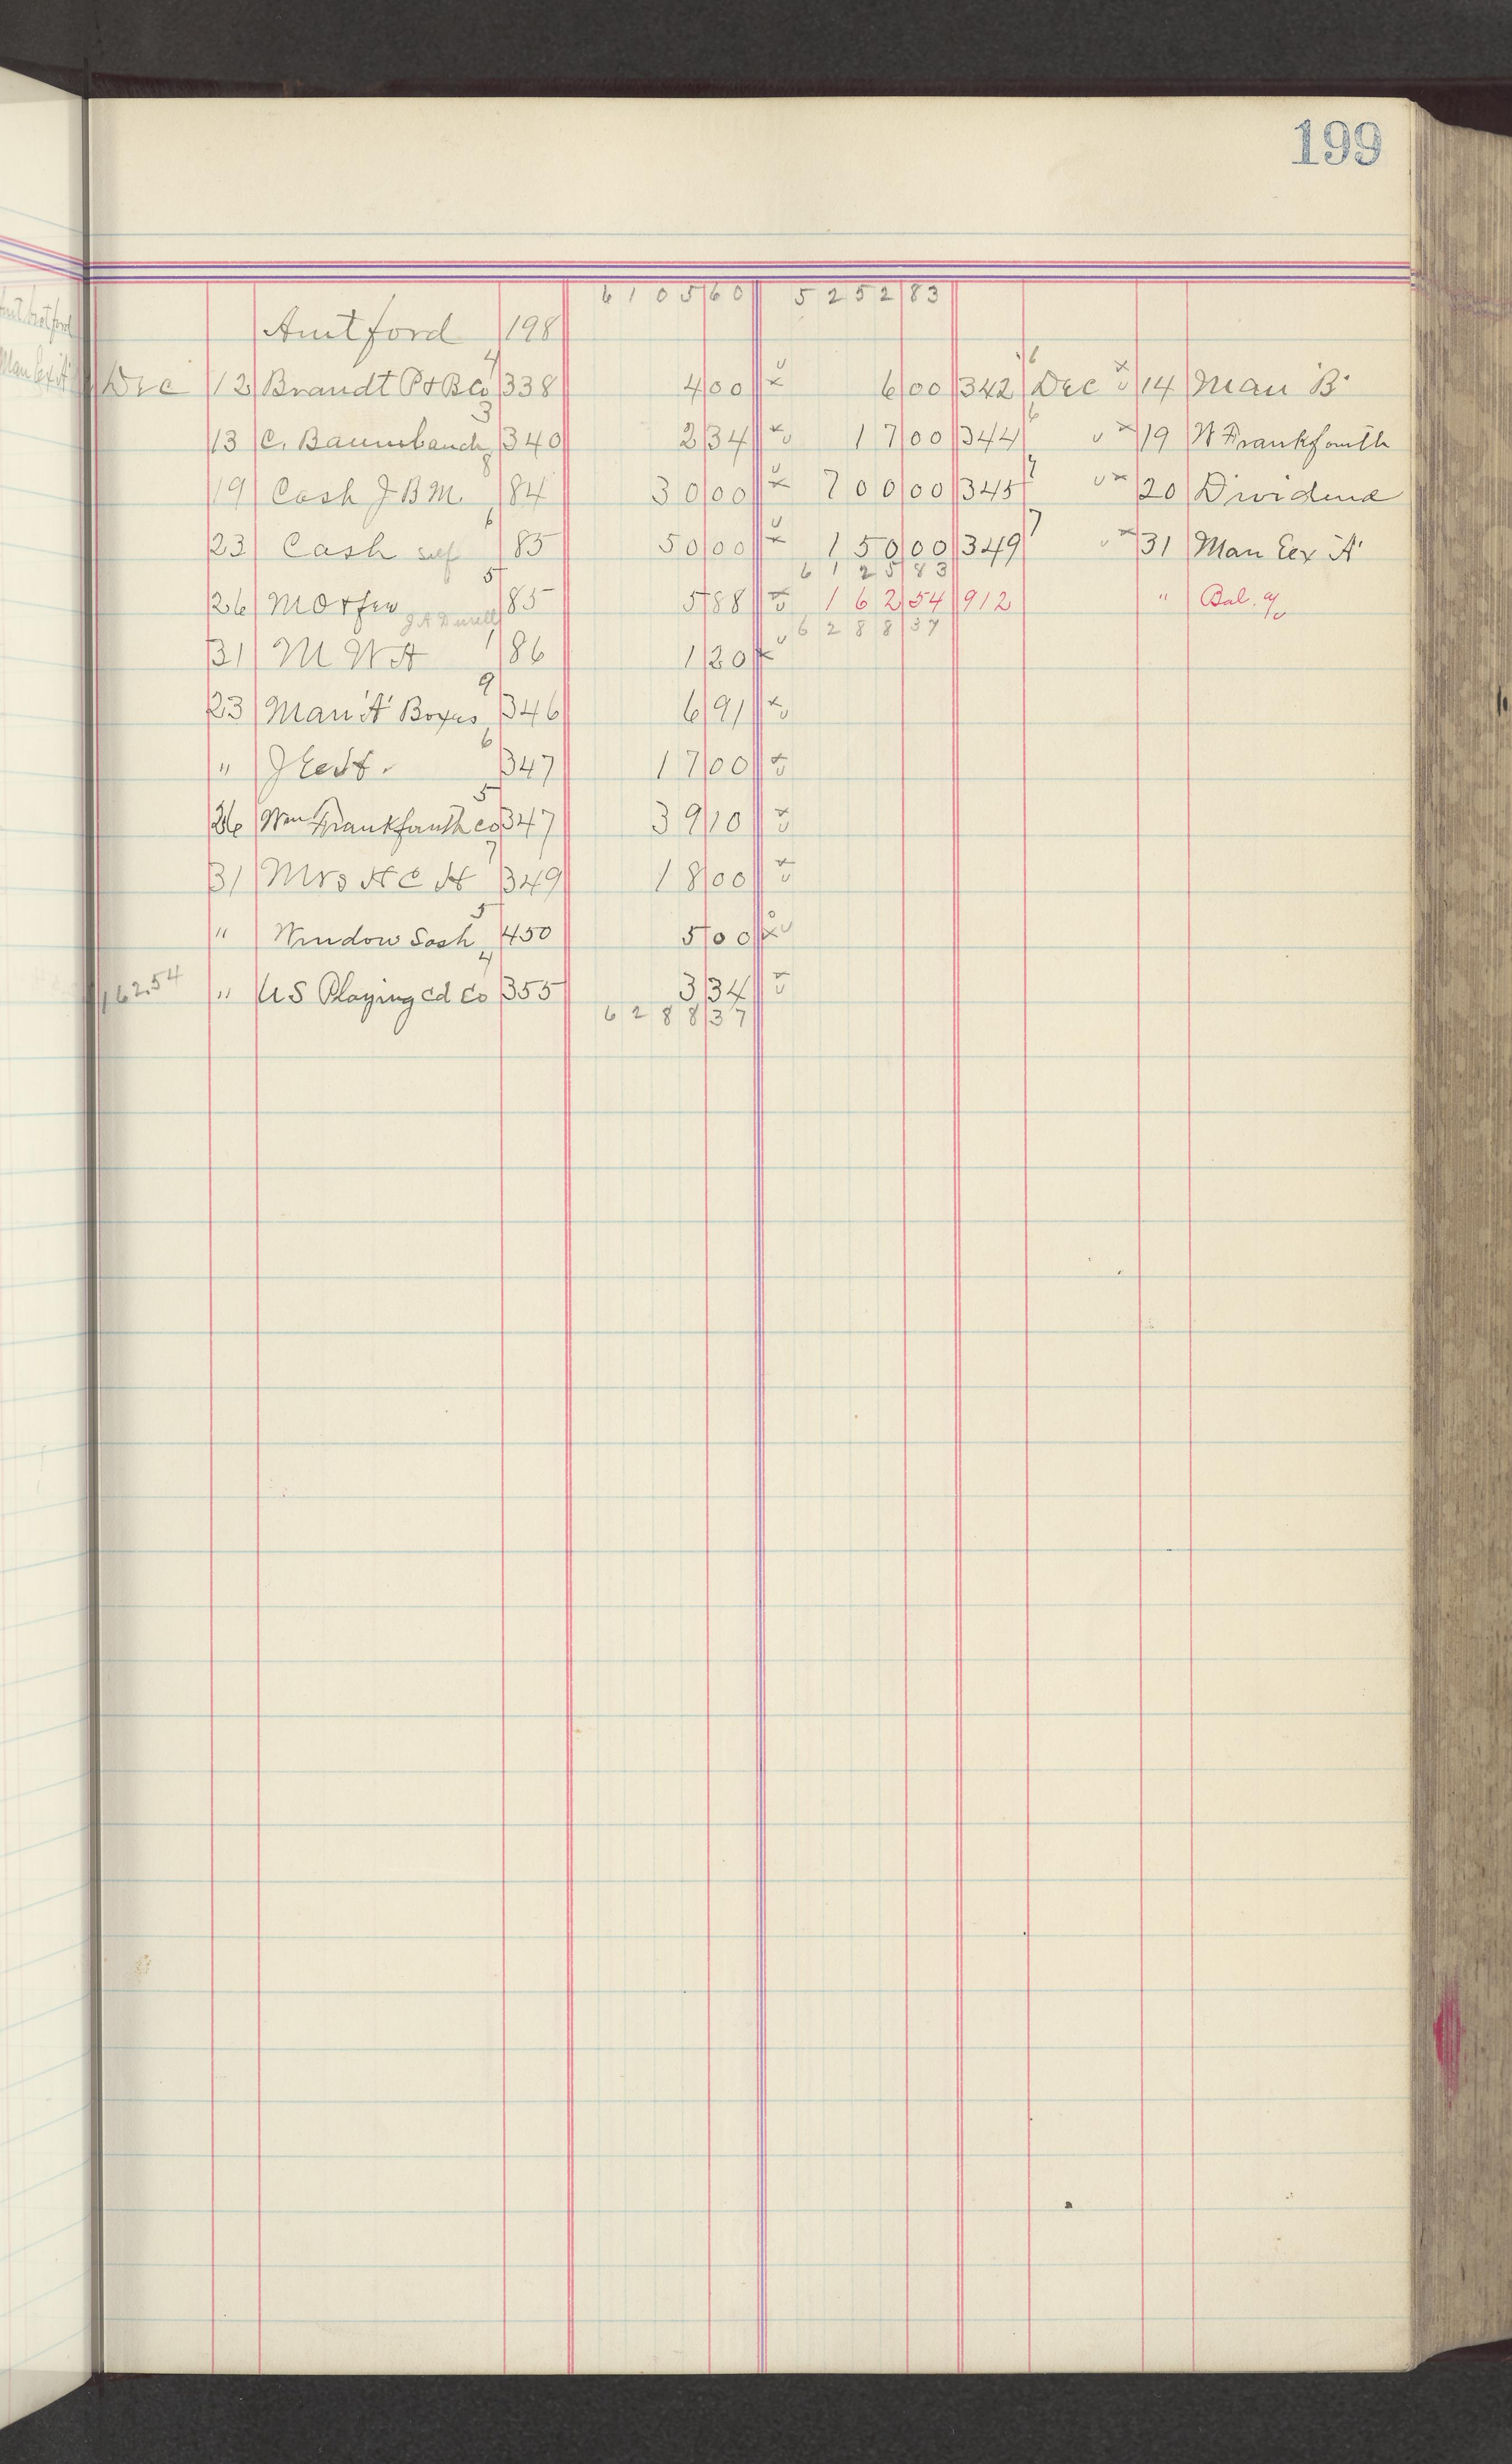 199
6105 60 5252 83
Amt ford 198
Dec 12 Brandt P & B Co 4 338 4 00 6 00 342 6 Dec 14 Man 'B'
13 C. Baumbach 3 340 2 34 17 00 344 6 19 W Frankfurth
19 Cash J B M. 8 84 30 00 700 00 345 7 20 Dividend
23 Cash self 6 85 50 00 150 00 349 7 31 Man Eex 'A'
6125 83
26 5 85 5 88 162 54 912 " Bal. %
6288 37
31 M W A 1 86 1 20
23 Man 'A' Boxes 9 346 6 91
" J 6 347 17 00
26 Wm Frankfurth Co 5 347 39 10
31 Mrs H C H 7 349 18 00
" Window Sash 5 450 5 00
162.54 " US Playing Cd Co 4 355 3 34
6288 37